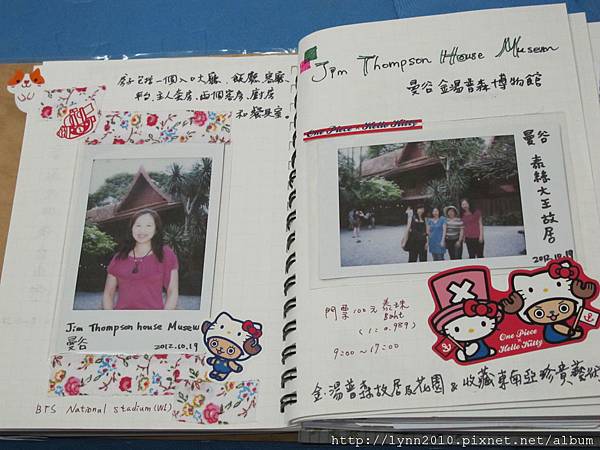 房子包括一個入口大廳、飯廳、客廳、
平台、主人套房、兩個客房、廚房
和餐具室。
Jim Thompson house Museum
曼谷 2012.10.19
BTS National stadium (W1)
Jim Thompson House Museum
曼谷 金湯普森博物館
One Piece × Hello Kitty
曼谷 泰絲大王故居
2012.10.19
門票 100元 泰珠
Baht
(1:0.989)
9:00~17:00
One Piece
×
Hello Kitty
金湯普森故居及花園 & 收藏東南亞珍貴藝術
http://lynn2010.pixnet.net/album